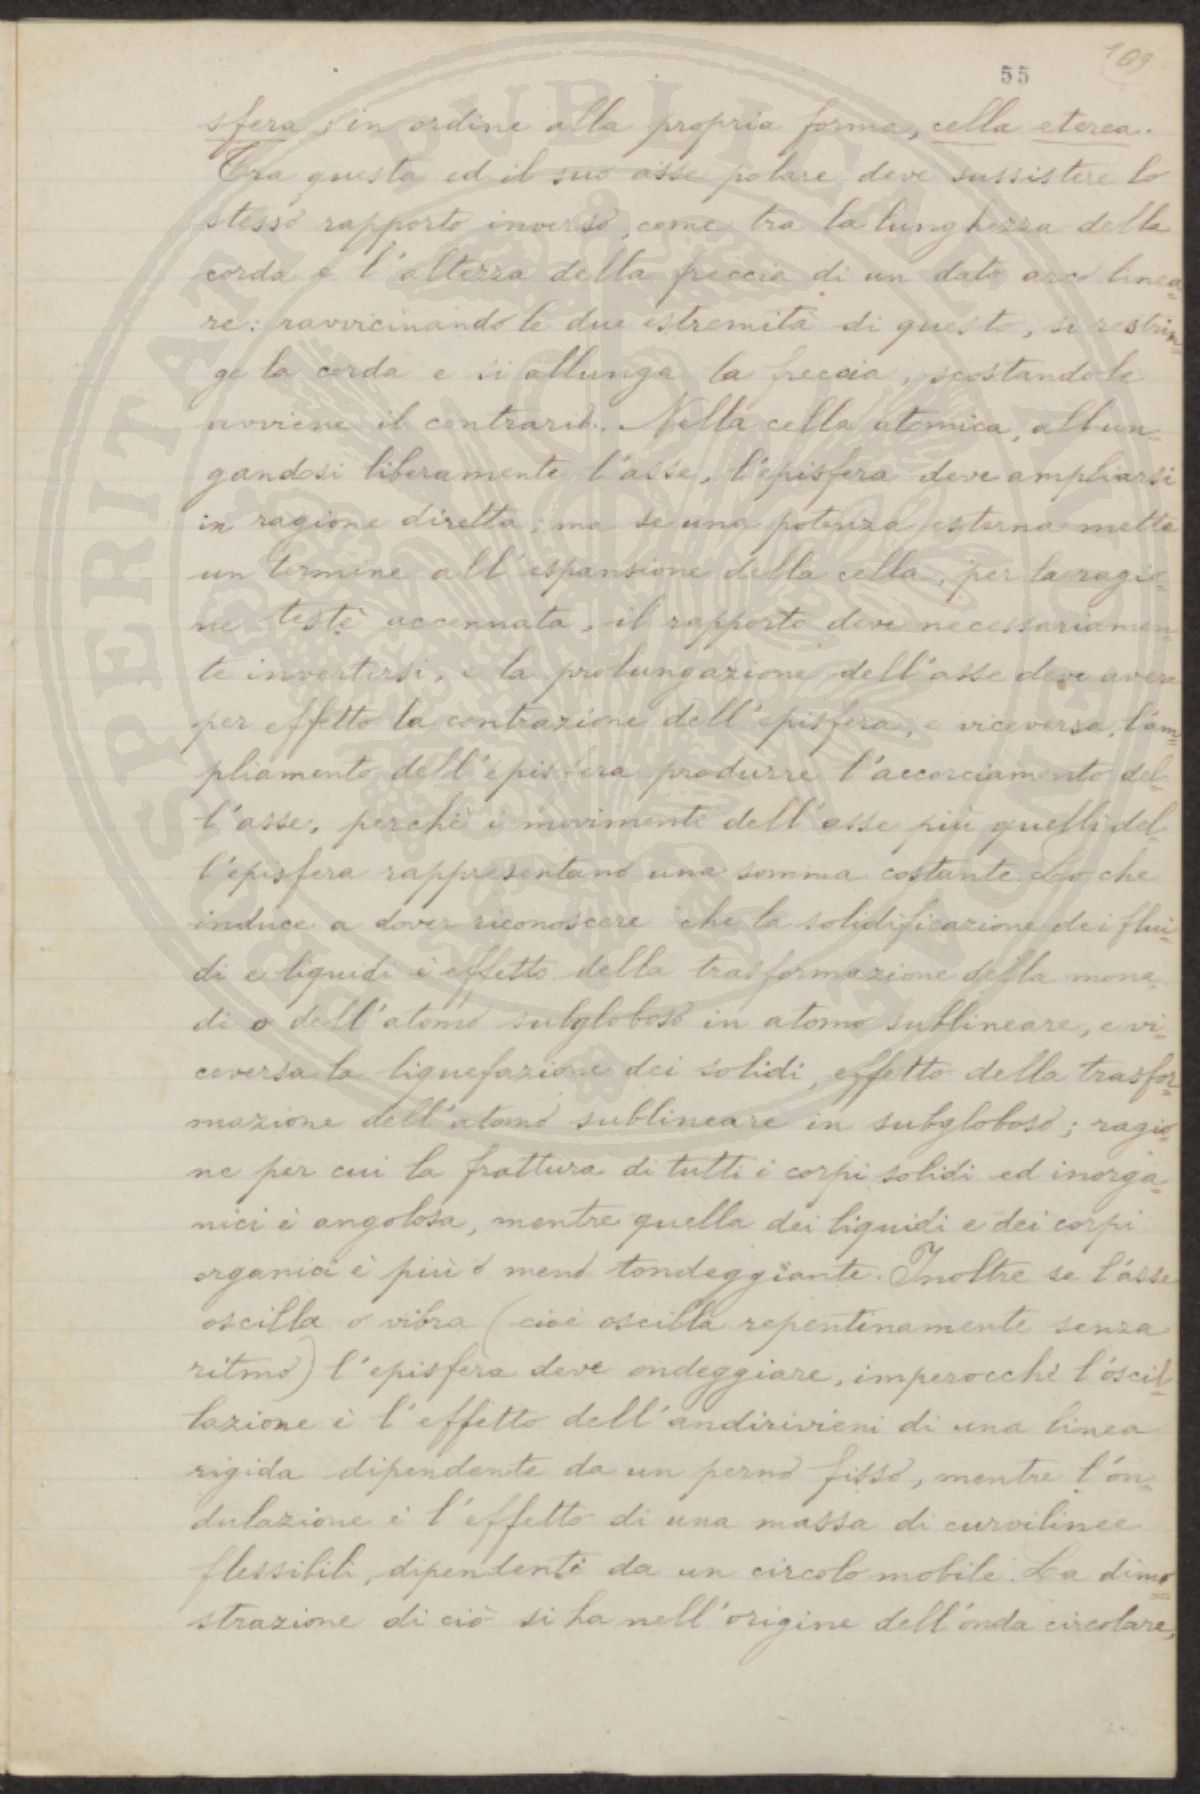 109
55
sfera; in ordine alla propria forma, cella eterea.
Tra questa ed il suo asse polare deve sussistere lo
stesso rapporto inverso, come tra la lunghezza della
corda e l'altezza della freccia di un dato arco linea-
re: ravvicinando le due estremità di questo, si restrin-
ge la corda e si allunga la freccia, scostandole
avviene il contrario. Nella cella atomica, allun-
gandosi liberamente l'asse, l'episfera deve ampliarsi
in ragione diretta; ma se una potenza esterna mette
un termine all'espansione della cella, per la ragio-
ne testè accennata, il rapporto deve necessariamen-
te invertirsi, e la prolungazione dell'asse deve avere
per effetto la contrazione dell'episfera, e viceversa, l'am-
pliamento dell'episfera produrre l'accorciamento del-
l'asse, perchè i movimenti dell'asse più quelli del-
l'episfera rappresentano una somma costante. Lo che
induce a dover riconoscere che la solidificazione dei flui-
di e liquidi è effetto della trasformazione della mona-
di o dell'atomo subgloboso in atomo sublineare, e vi-
ceversa la liquefazione dei solidi, effetto della trasfor-
mazione dell'atomo sublineare in subgloboso; ragio-
ne per cui la frattura di tutti i corpi solidi ed inorga-
nici è angolosa, mentre quella dei liquidi e dei corpi
organici è più o meno tondeggiante. Inoltre se l'asse
oscilla o vibra (cioè oscilla repentinamente senza
ritmo) l'episfera deve ondeggiare, imperocchè l'oscil-
lazione è l'effetto dell'andirivieni di una linea
rigida dipendente da un perno fisso, mentre l'on-
dulazione è l'effetto di una massa di curvilinee
flessibili, dipendenti da un circolo mobile. La dimo-
strazione di ciò si ha nell'origine dell'onda circolare,